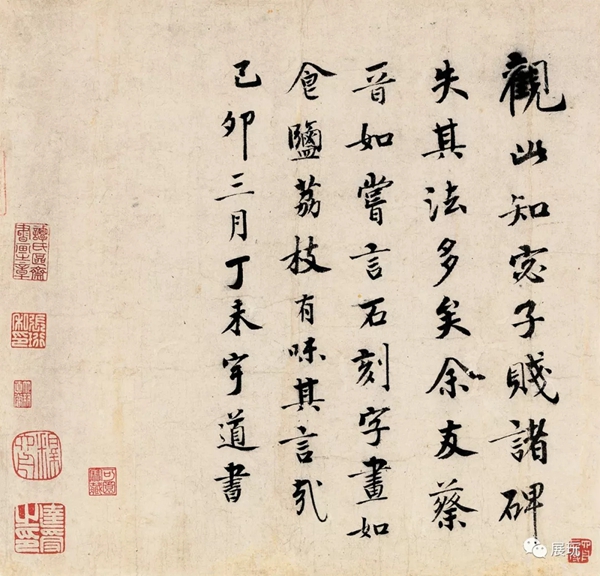 觀此知宓子賤諸碑
失其法多矣余友蔡
晋如嘗言石刻字畫如
食鹽荔枝有味其言哉
己卯三月丁未宇道書
展玩